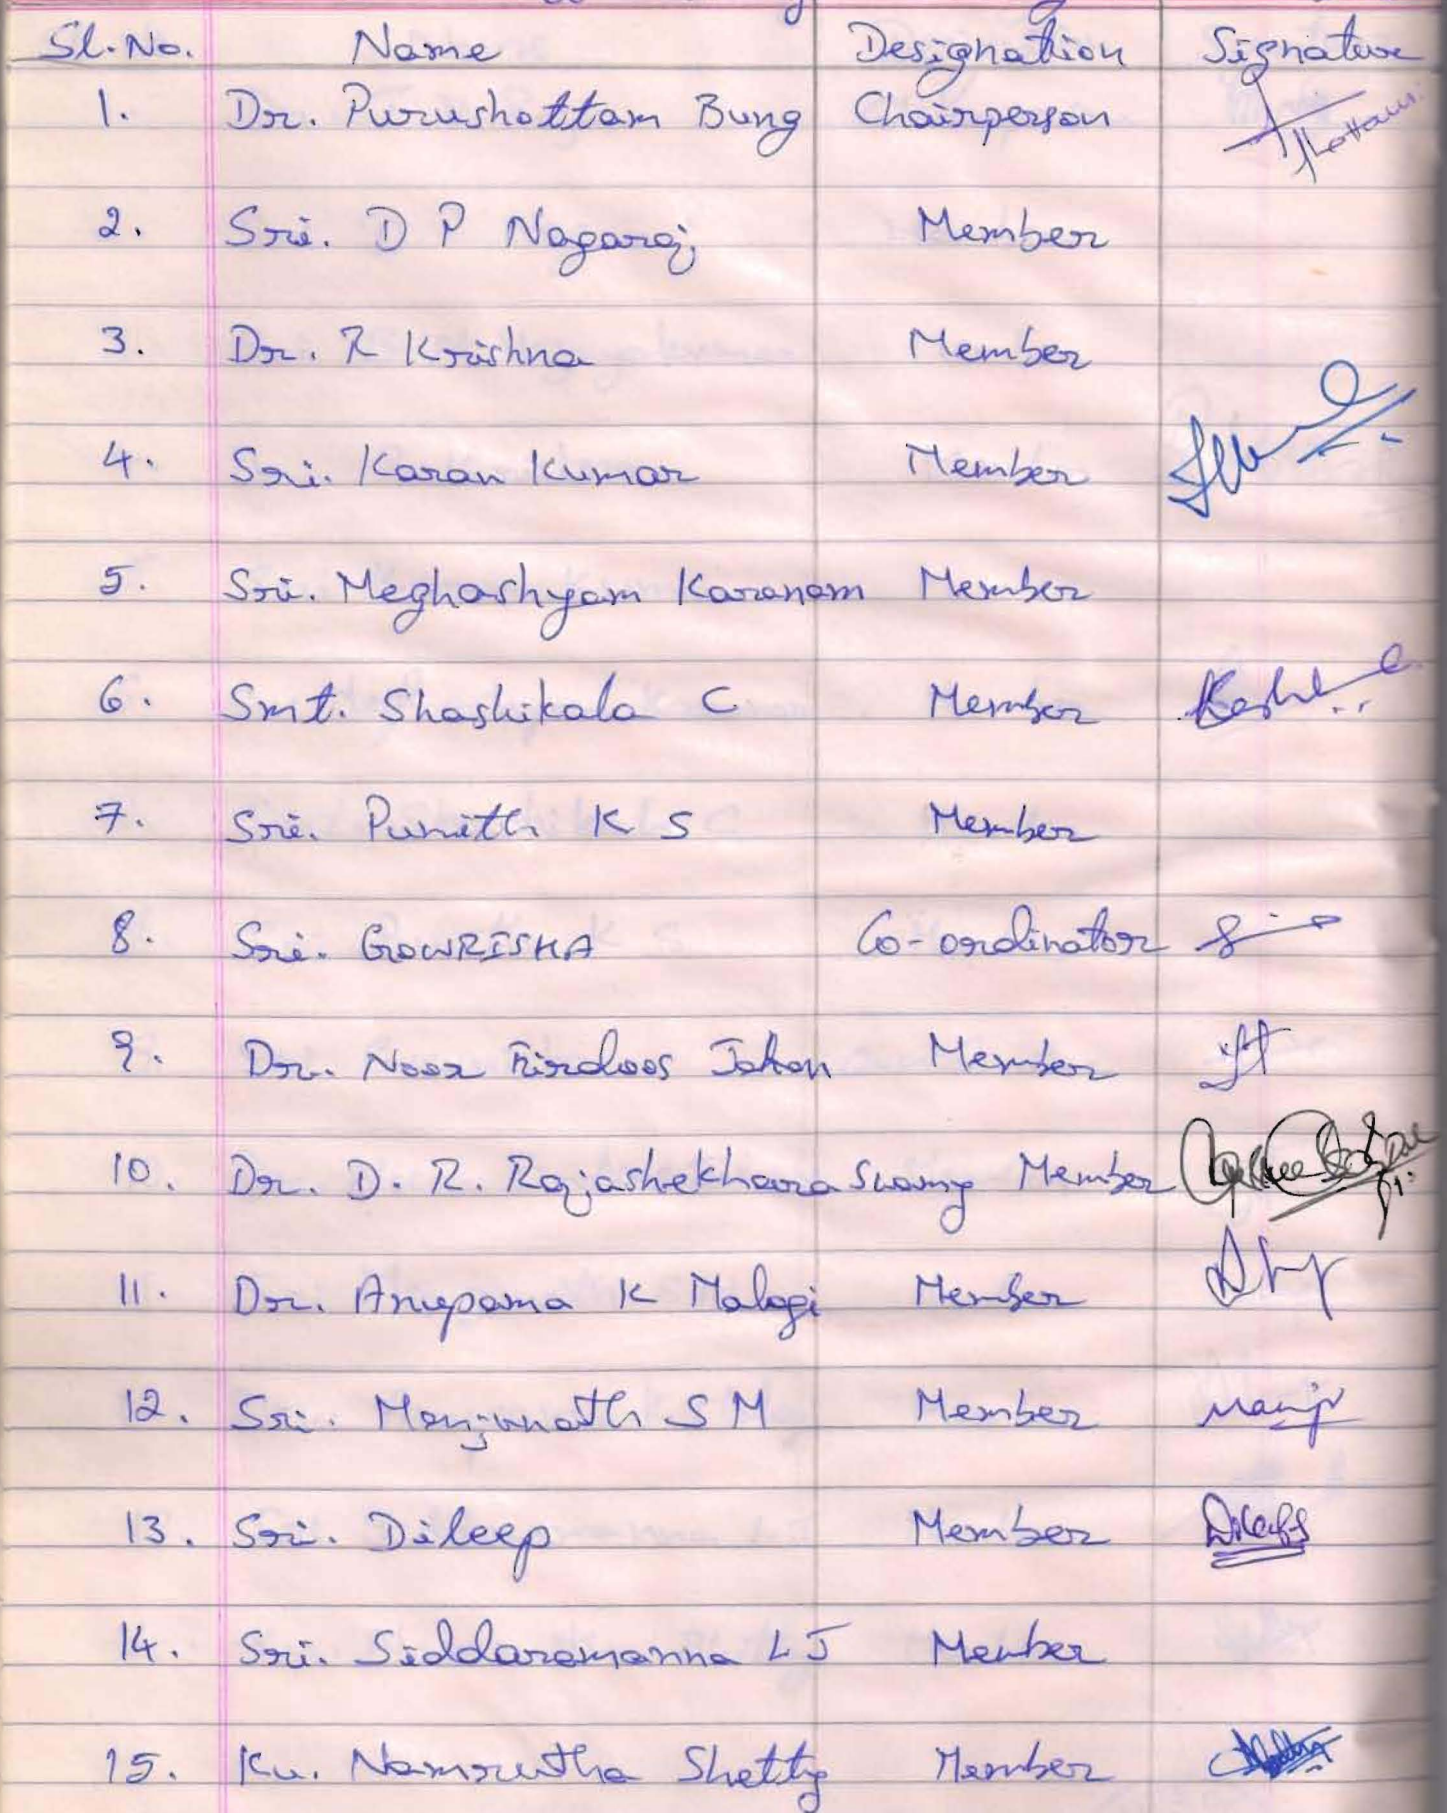 Sl. No. Name Designation Signature
1. Dr. Purushottam Bung Chairperson
2. Sri. D P Nagaraj Member
3. Dr. R Krishna Member
4. Sri. Karan Kumar Member
5. Sri. Meghashyam Karanam Member
6. Smt. Shashikala C Member
7. Sri. Punith K S Member
8. Sri. GOWRISHA Co-ordinator
9. Dr. Noor Firdoos Jahan Member
10. Dr. D. R. Rajashekhara Swamy Member
11. Dr. Anupama K Malagi Member
12. Sri. Manjunath S M Member Manju
13. Sri. Dileep Member
14. Sri. Siddaramanna L J Member
15. Ku. Namrutha Shetty Member